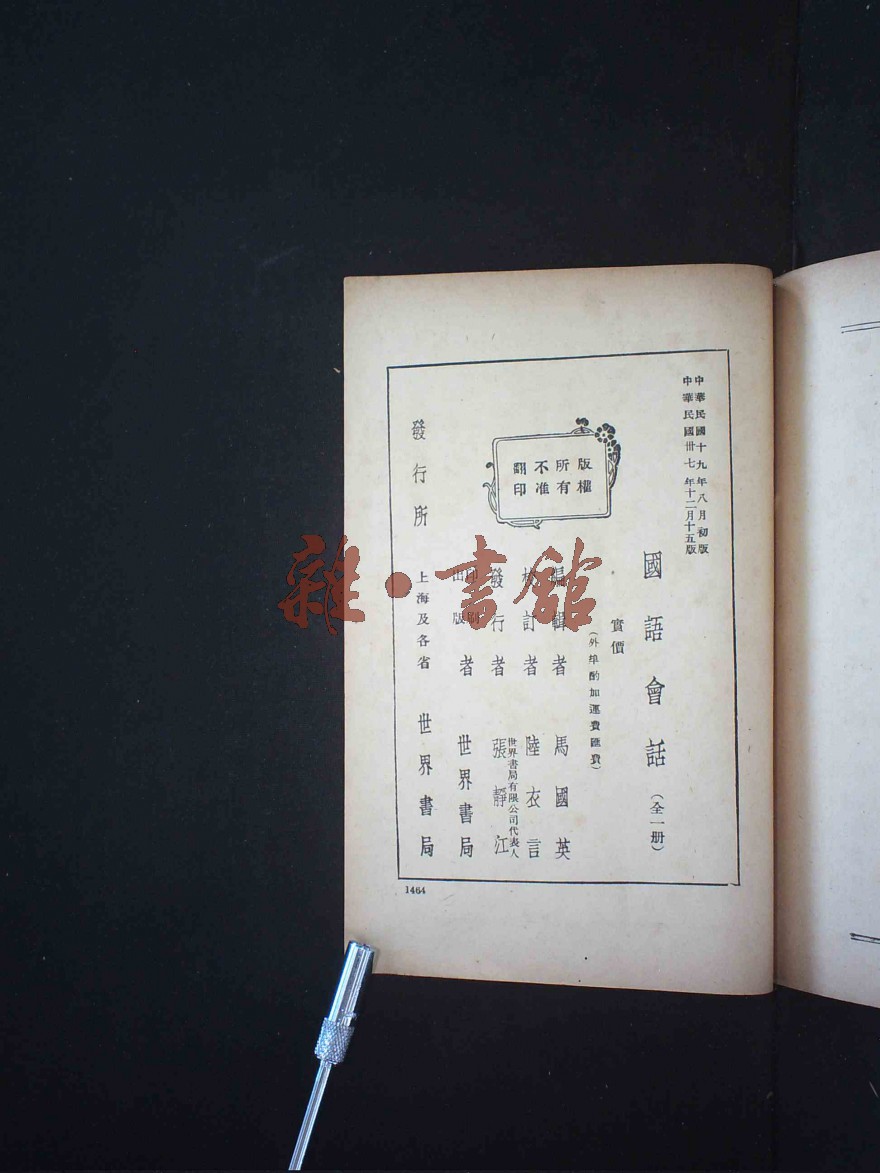 中華民國十九年八月初版
中華民國卅七年十二月十五版
國語會話(全一册)
實價
(外埠酌加運費匯費)
編輯者 馬國英
校訂者 陸衣言
發行者 世界書局有限公司代表人 張靜江
印刷出版者 世界書局
發行所 上海及各省 世界書局
版權所有
不准翻印
1464
雜·書館